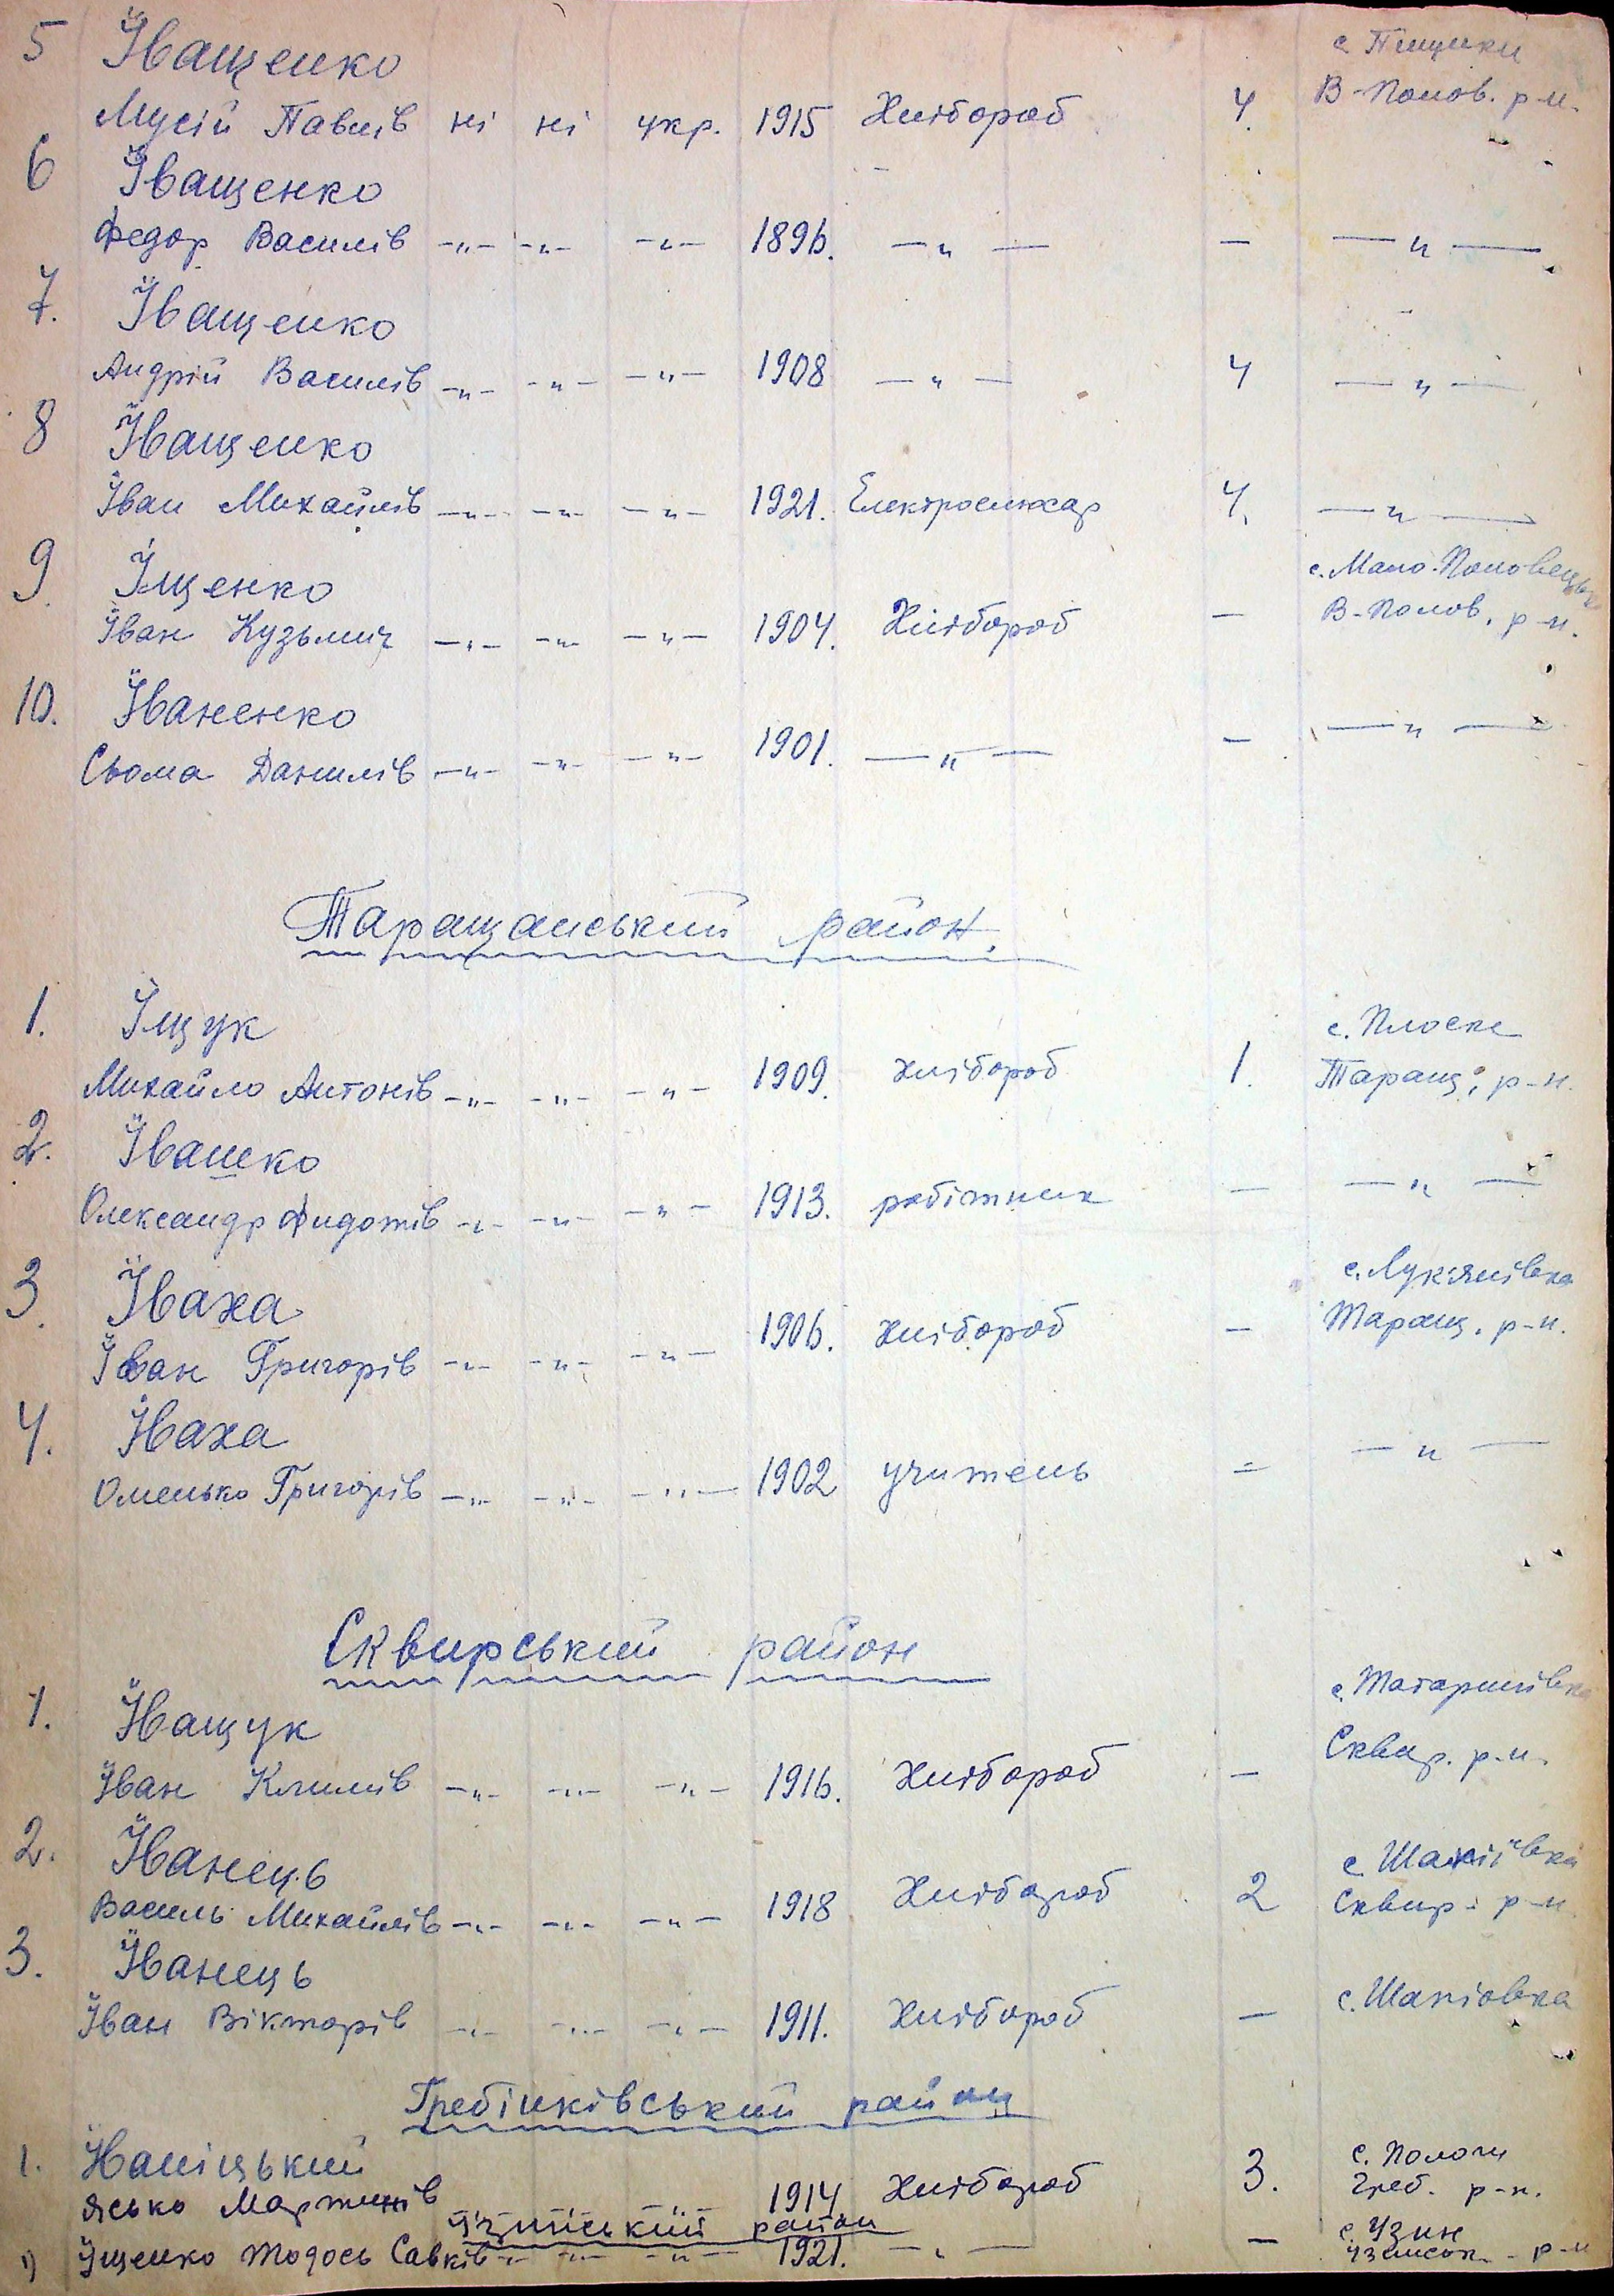 5 Іващенко с. Пищики
Мусій Павлів ні ні укр. 1915 Хлібороб 4. В-Полов. р-н.
6 Іващенко
Федор Василів -"- -"- -"- 1896. -"- - -"-
7. Іващенко
Андрій Василів -"- -"- -"- 1908 -"- 4 -"-
8 Іващенко
Іван Михайлів -"- -"- -"- 1921. Електрослюсар 4. -"-
9. Іщенко с. Мало-Половецьк
Іван Кузьмич -"- -"- -"- 1904. Хлібороб - В-Полов. р-н.
10. Іваненко
Сьома Данилів -"- -"- -"- 1901. -"- - -"-
Таращанський район.
1. Іщук с. Плоске
Михайло Антонів -"- -"- -"- 1909. хлібороб 1. Таращ. р-н.
2. Івашко
Олександр Фидотів -"- -"- -"- 1913. робітник - -"-
3. Іваха с. Лук'янівка
Іван Григорів -"- -"- -"- 1906. хлібороб - Таращ. р-н.
4. Іваха
Омелько Григорів -"- -"- -"- 1902 учитель - -"-
Сквирський район
1. Іващук с. Татаринівка
Іван Климів -"- -"- -"- 1916. Хлібороб - Сквир. р-н.
2. Іванець с. Шаліївка
Василь Михайлів -"- -"- -"- 1918 Хлібороб 2 Сквир. р-н
3. Іванець
Іван Вікторів -"- -"- -"- 1911. Хлібороб - с.
Гребінківський район
1. Іваніцький с. Пологи
Ясько Мартинів -"- -"- -"- 1914 Хлібороб 3. Греб. р-н.
Узинський район
1) Іщенко Тодось Савків -"- -"- -"- 1921. -"- - с. Узин
Узинськ. р-н